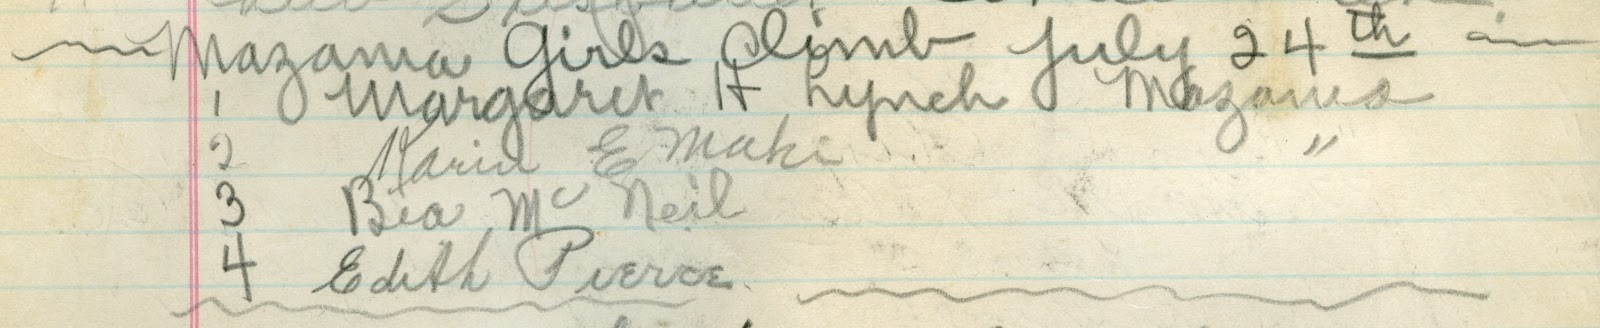 Mazama Girls Climb July 24th
1 Margaret H Lynch Mazama
2 Karin E Maki "
3 Bea McNeil
4 Edith Pierce